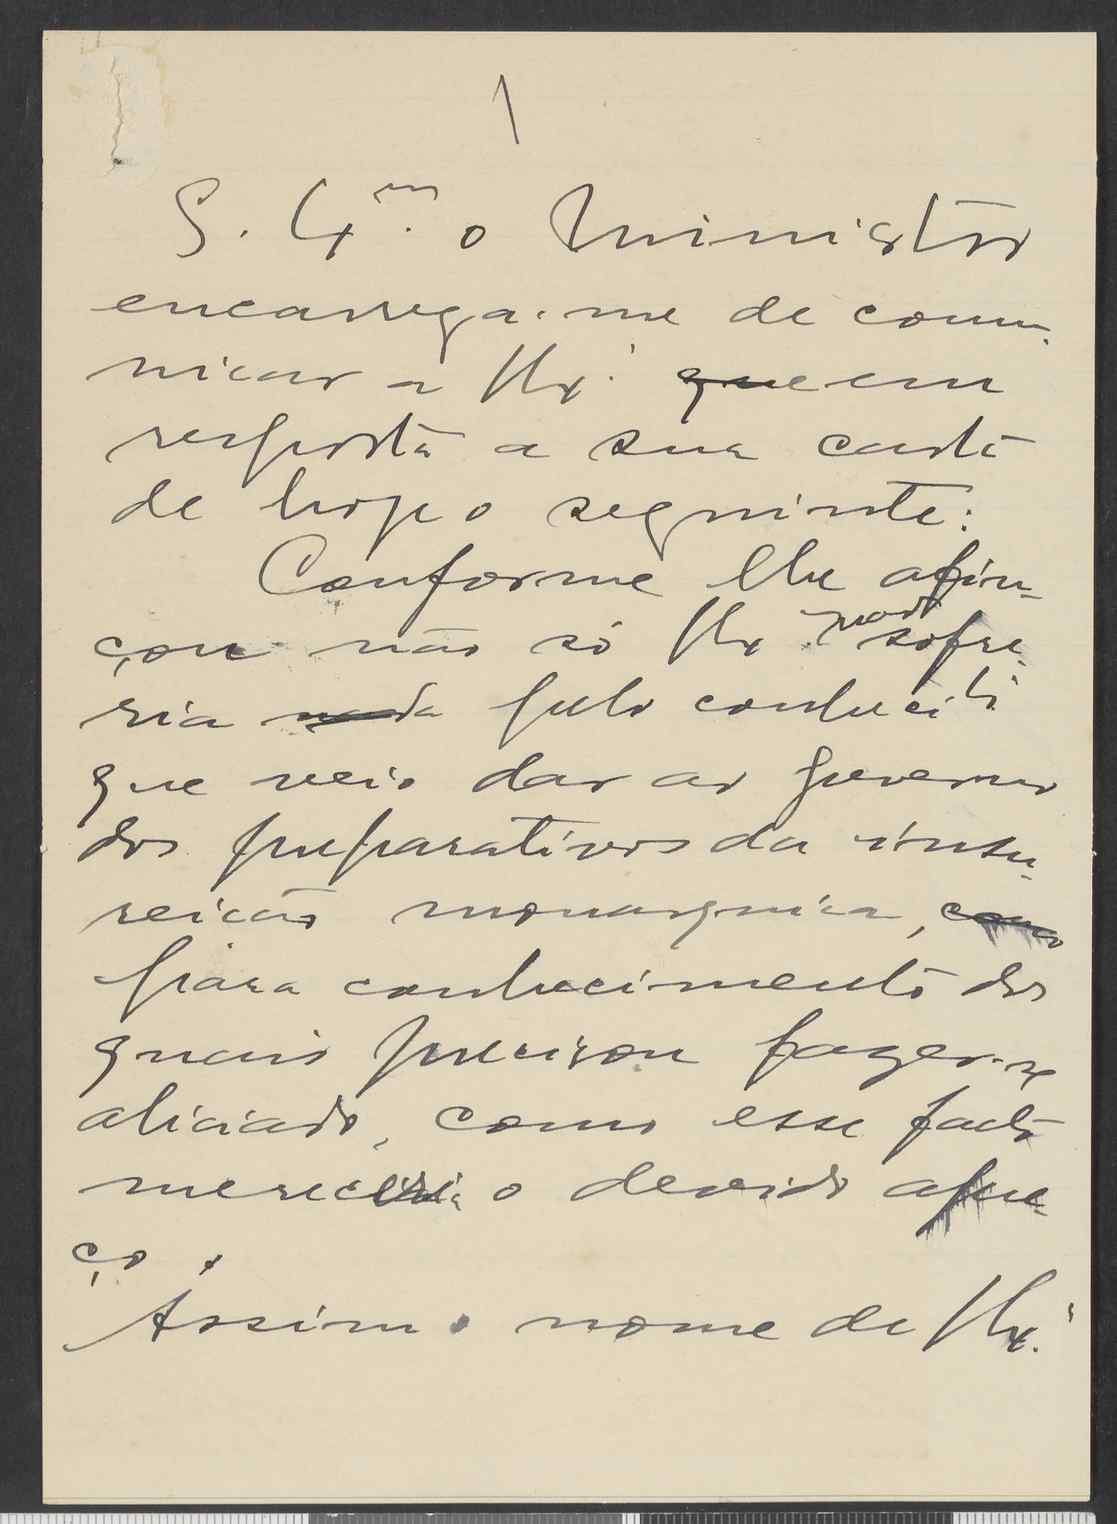 1
S. Ex.ª o Ministro
encarrega-me de comu-
nicar a V. Ex.ª que em
resposta a sua carta
de hoje o seguinte:
Conforme lhe afian-
çou não só V. Ex.ª nada sofre-
ria nada pelo conhecito
que veio dar ao Governo
dos preparativos da insu-
reição monarquica, como
para conhecimento dos
quais precisou fazer-se
aliciado, como esse facto
mereceria o devido apre-
ço.
Assim o nome de V. Ex.ª